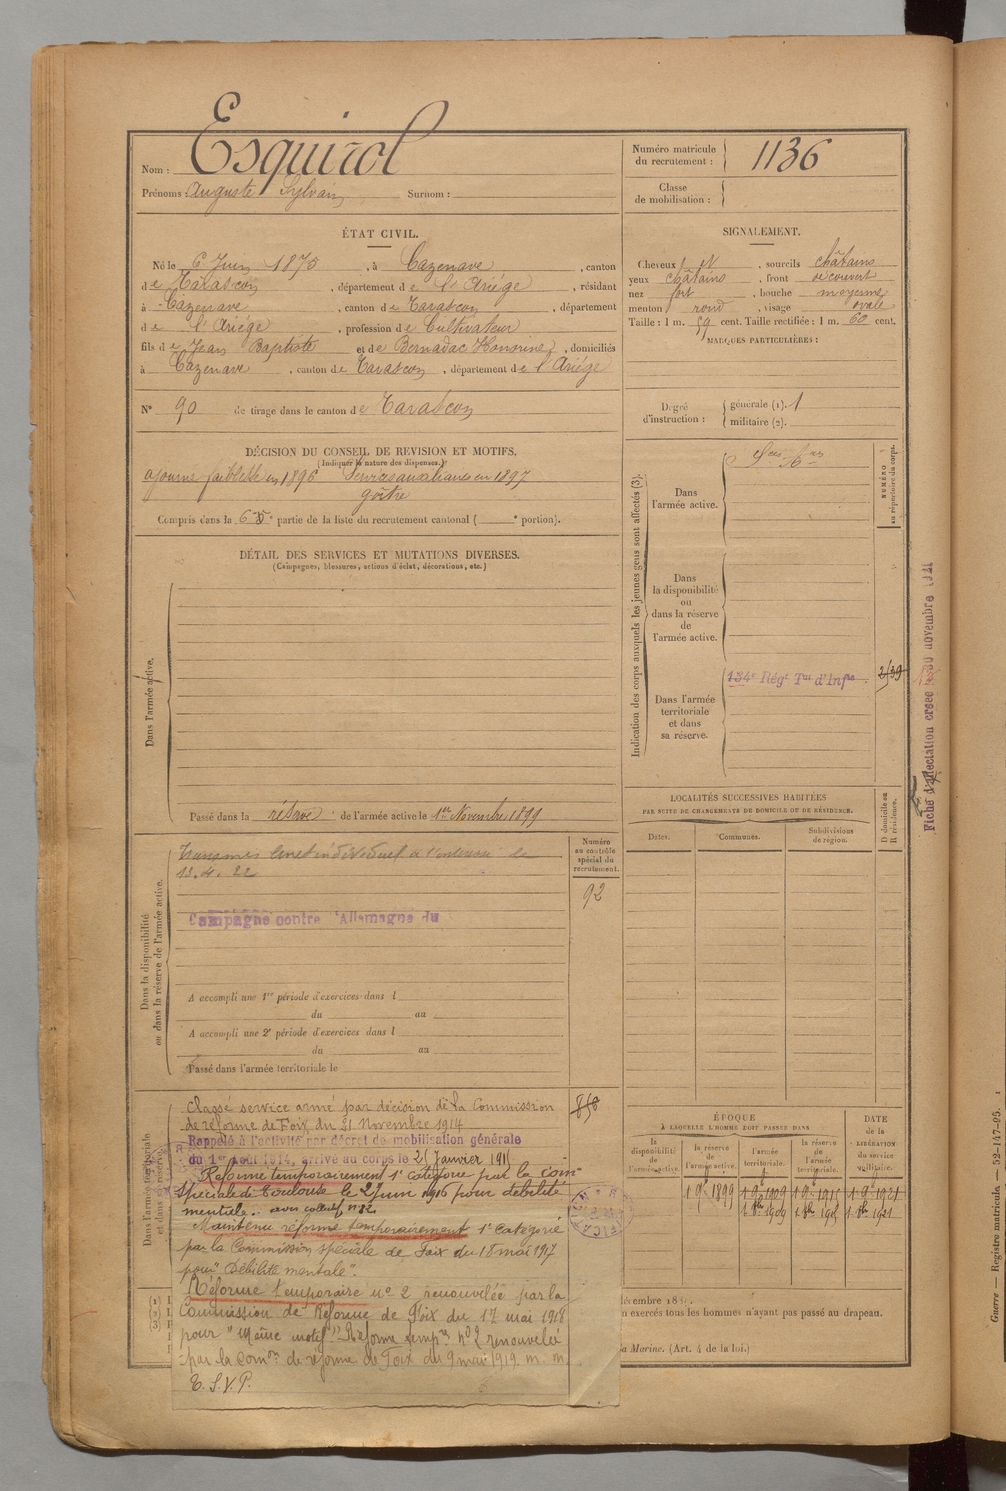 Nom : Esquirol
Prénoms : Auguste Sylvain Surnom :
Numéro matricule
du recrutement : 1136
Classe
de mobilisation :
ÉTAT CIVIL.
Né le 6 Juin 1875, à Cazenave, canton
de Tarascon, département de l'Ariége, résidant
à Cazenave, canton de Tarascon, département
de l'Ariége, profession de Cultivateur
fils de Jean Baptiste et de Bernadac Honorine, domiciliés
à Cazenave, canton de Tarascon, département de l'Ariége
N° 90 de tirage dans le canton de Tarascon
SIGNALEMENT.
Cheveux et, sourcils châtains
yeux châtains, front découvert
nez fort, bouche moyenne
menton rond, visage ovale
Taille : 1 m. 59 cent. Taille rectifiée : 1 m. 60 cent.
MARQUES PARTICULIÈRES :
Degré
d'instruction :
générale (1). 1
militaire (2).
DÉCISION DU CONSEIL DE REVISION ET MOTIFS.
(Indiquer la nature des dispenses.)
ajourné faiblesse en 1896 Services auxiliaires en 1897
goître
Compris dans la 6e partie de la liste du recrutement cantonal ( e portion).
DÉTAIL DES SERVICES ET MUTATIONS DIVERSES.
(Campagnes, blessures, actions d'éclat, décorations, etc.)
Dans l'armée active.
Passé dans la réserve de l'armée active le 1er Novembre 1899
Indication des corps auxquels les jeunes gens sont affectés (3).
NUMÉRO
au répertoire du corps.
Dans
l'armée active.
Dans
la disponibilité
ou
dans la réserve
de
l'armée active.
Dans l'armée
territoriale
et dans
sa réserve.
134e Régt Tal d'Infie
Fiche d'affectation créée 30 novembre
LOCALITÉS SUCCESSIVES HABITÉES
PAR SUITE DE CHANGEMENTS DE DOMICILE OU DE RÉSIDENCE.
D domicile ou
R résidence.
Dates. Communes. Subdivisions
de région.
Dans la disponibilité
ou dans la réserve de l'armée active.
Numéro
au contrôle
spécial du
recrutement.
92
Transmis livret individuel à l'intéressé le
12.4.22
Campagne contre l'Allemagne du
A accompli une 1re période d'exercices dans l
du au
A accompli une 2e période d'exercices dans l
du au
Passé dans l'armée territoriale le
Dans l'armée territoriale
et dans sa réserve.
858
Classé service armé par décision de la Commission
de réforme de Foix du 21 Novembre 1914
Rappelé à l'activité par décret de mobilisation générale
du 1er août 1914, arrivé au corps le 21 Janvier 1915
Réformé temporairement 1e Catégorie par la Com on
spéciale de Toulouse le 2 juin 1916 pour débilité
mentale. avis collectif n° 32.
Maintenu réformé temporairement 1e Catégorie
par la Commission spéciale de Foix du 18 mai 1917
pour "Débilité mentale".
Réforme temporaire n° 2 renouvelée par la
Commission de Réforme de Foix du 17 mai 1918
pour "même motif" Réforme tempre n° 2 renouvelée
par la Comon de réforme de Foix du 9 mai 1919 m. m.
T. S. V. P.
ÉPOQUE
À LAQUELLE L'HOMME DOIT PASSER DANS
DATE
de la
LIBÉRATION
du service
militaire.
la
disponibilité
de
l'armée active.
la réserve
de
l'armée active.
l'armée
territoriale.
la réserve
de
l'armée
territoriale.
1 9bre 1899 1 9bre 1909 1 9bre 1915 1 9bre 1921
1 8bre 1909 1 8bre 1915 1 8bre 1921
(1)
(2)
(3)
n exercés tous les hommes n'ayant pas passé au drapeau.
a Marine. (Art. 4 de la loi.)
Guerre — Registre matricule. — 52-147-95.